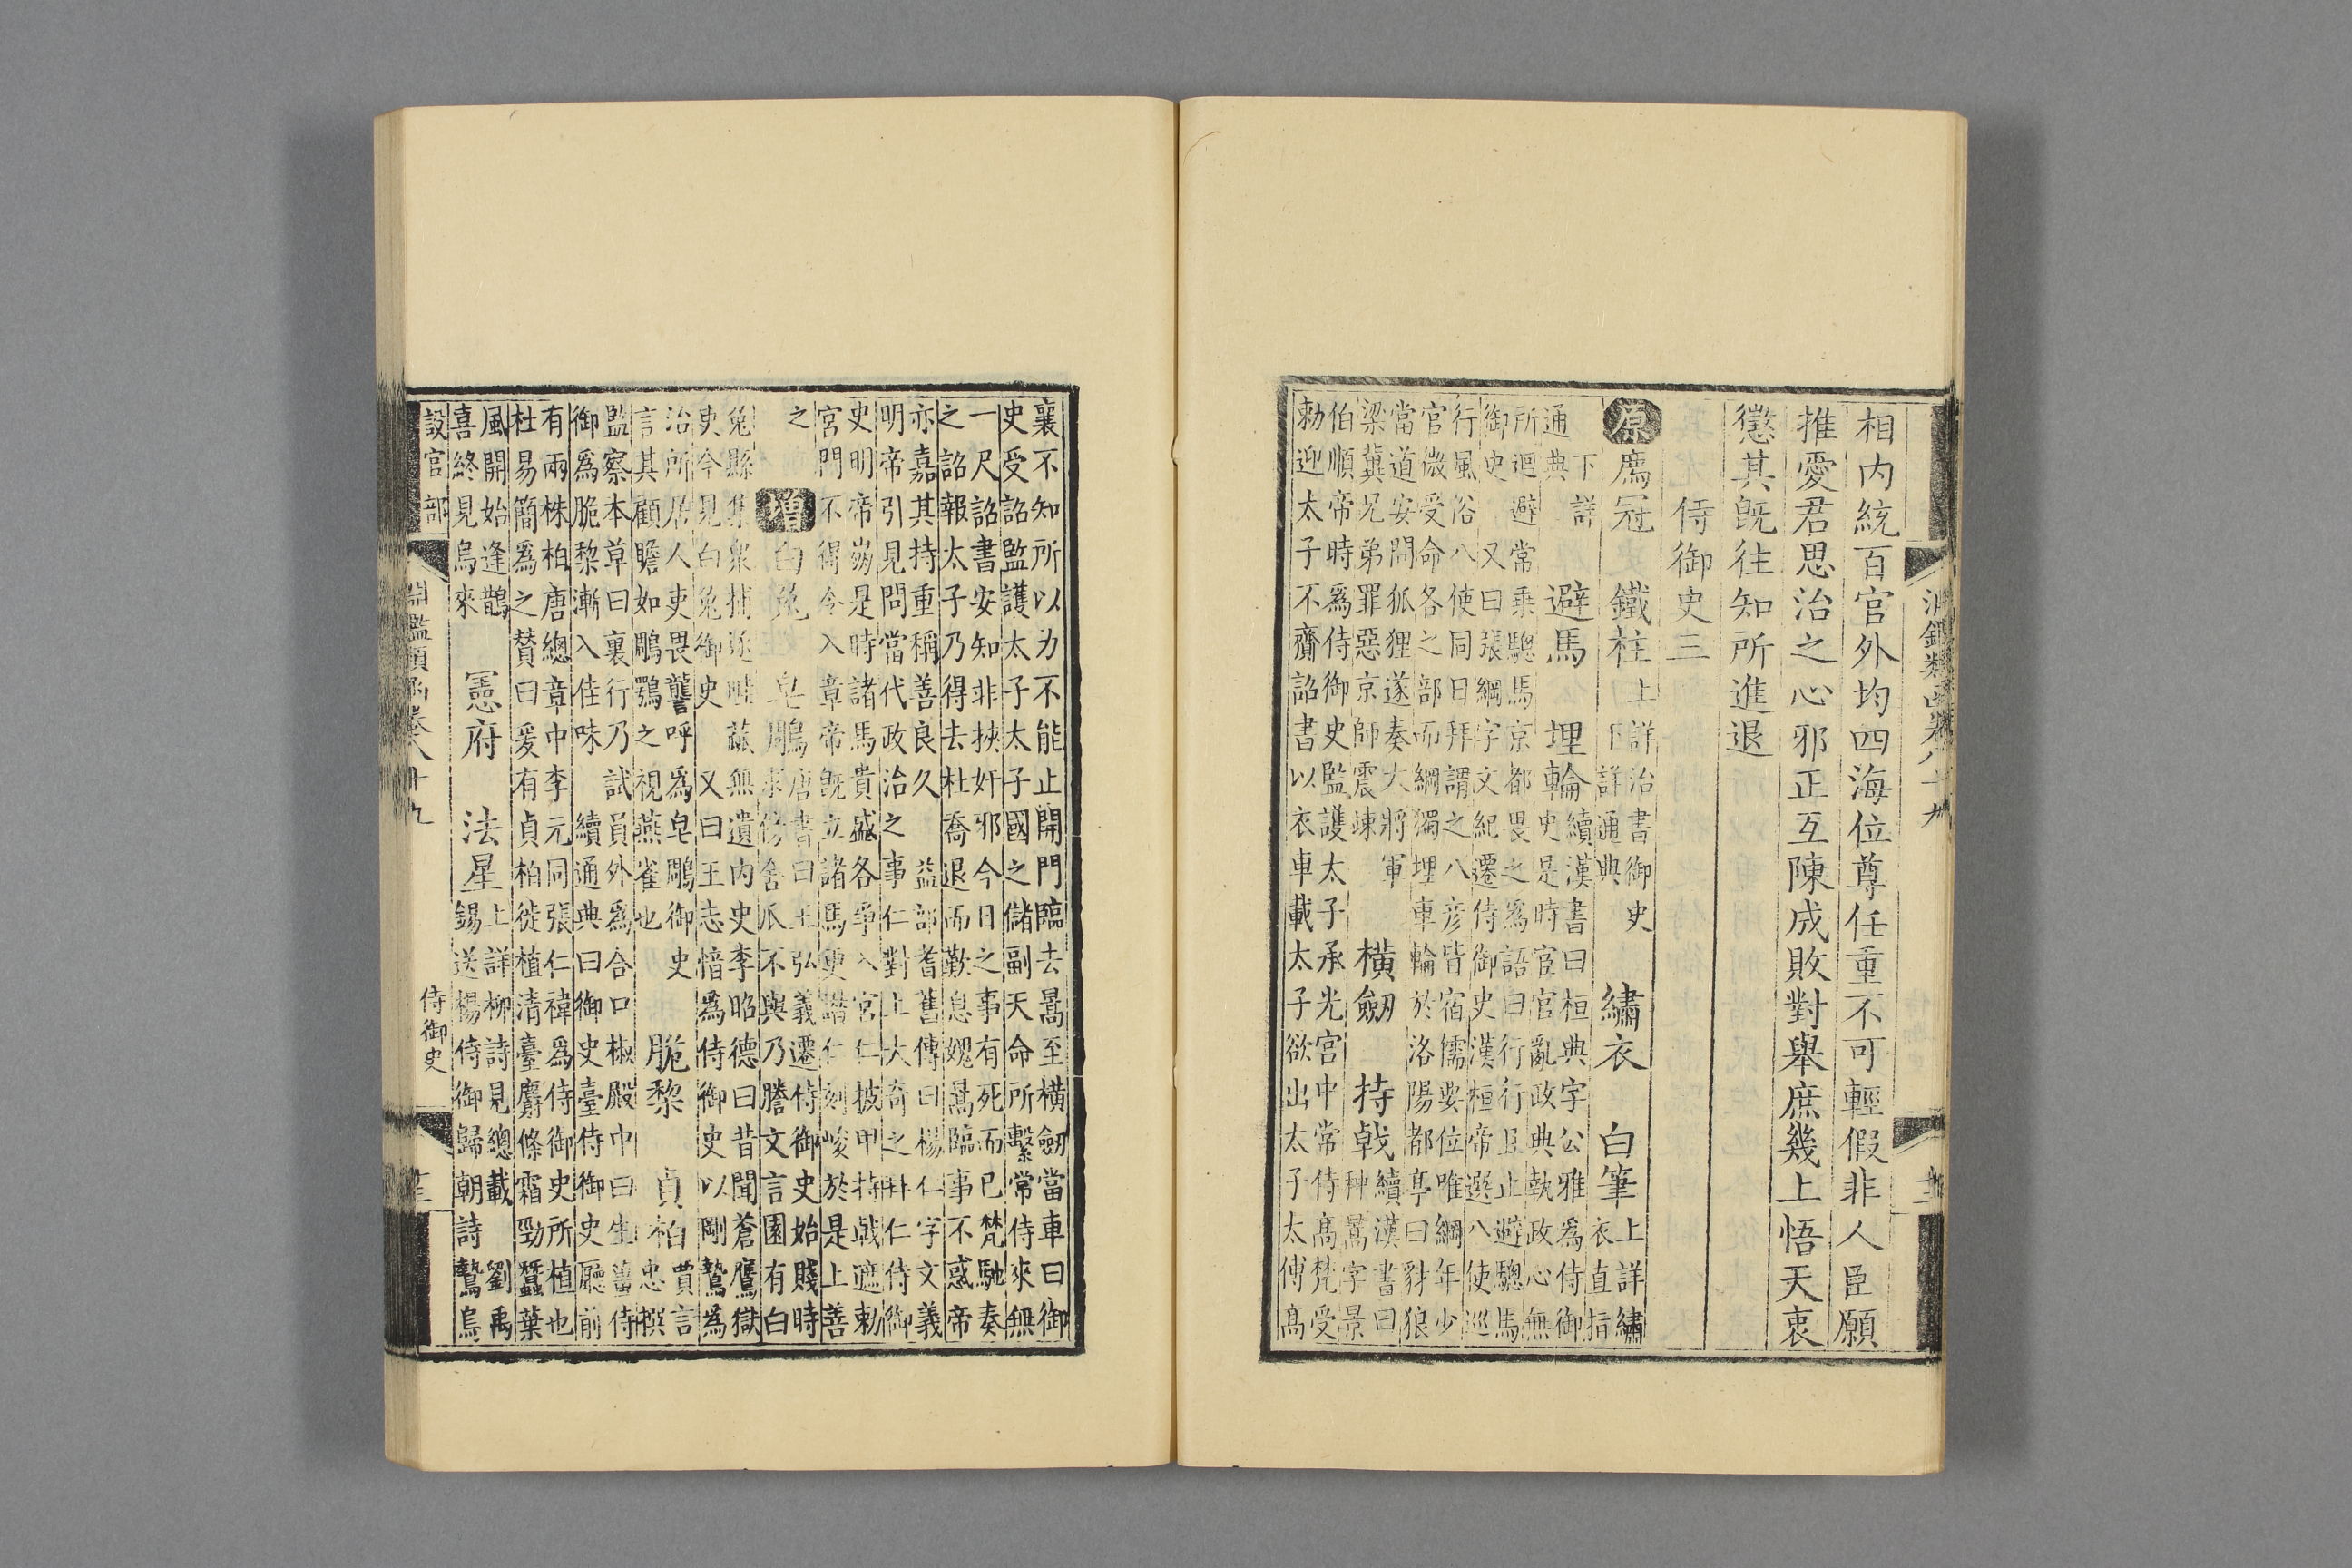 相内統百官外均四海位尊任重不可輕假非人臣願
推愛君思治之心邪正互陳成敗對舉庶幾上悟天衷
懲其旣往知所進退
侍御史三
原廌冠 鐵柱上詳治書御史
下詳通典 繡衣 白筆上詳繡
衣直指
下詳
通典 避馬 埋輪續漢書曰桓典字公雅爲侍御
史是時宦官亂政典執政心無
所迴避常乗驄馬京都畏之爲語曰行行且止避驄馬
御史 又曰張綱字文紀遷侍御史漢桓帝選八使巡
行風俗八使同日拜謂之八彦皆宿儒要位唯綱年少
官微受命各之部而綱獨埋車輪於洛陽都亭曰豺狼
當道安問狐狸遂奏大將軍
梁冀兄弟罪惡京師震竦 橫劒 持戟續漢書曰
种暠字景
伯順帝時爲侍御史監護太子承光宫中常侍髙梵受
勑迎太子不齎詔書以衣車載太子欲出太子太傅髙
襄不知所以力不能止開門臨去暠至橫劒當車曰御
史受詔監護太子太子國之儲副天命所繫常侍來無
一尺詔書安知非挾奸邪今日之事有死而已梵馳奏
之詔報太子乃得去杜喬退而歎息媿暠臨事不惑帝
亦嘉其持重稱善良久 益部耆舊傳曰楊仁字文義
明帝引見問當代政治之事仁對上大奇之拜仁侍御
史明帝崩是時諸馬貴盛各爭入宮仁披甲持戟遮勑
宮門不得令入章帝旣立諸馬更譖仁刻峻於是上善
之 增白兔 皂鵰唐書曰王弘義遷侍御史始賤時
求傍舍瓜不與乃騰文言園有白
兔縣集衆捕逐畦蓏無遺内史李昭德曰昔聞蒼鷹獄
吏今見白兔御史 又曰王志愔爲侍御史以剛鷙爲
治所居人吏畏讋呼爲皂鵰御史
言其顧瞻如鵰鶚之視燕雀也 脆棃 貞柏賈言
忠撰
監察本草曰裏行乃試員外爲合口椒殿中曰生薑侍
御爲脆棃漸入佳味 續通典曰御史臺侍御史廳前
有兩株柏唐總章中李元同張仁禕爲侍御史所植也
杜易簡爲之賛曰爰有貞柏徙植清臺麝條霜勁蠶葉
風開始逢鵲
喜終見烏來 憲府 法星上詳柳詩見總載 劉禹
錫送楊侍御歸朝詩鷙烏
設官部 侍御史